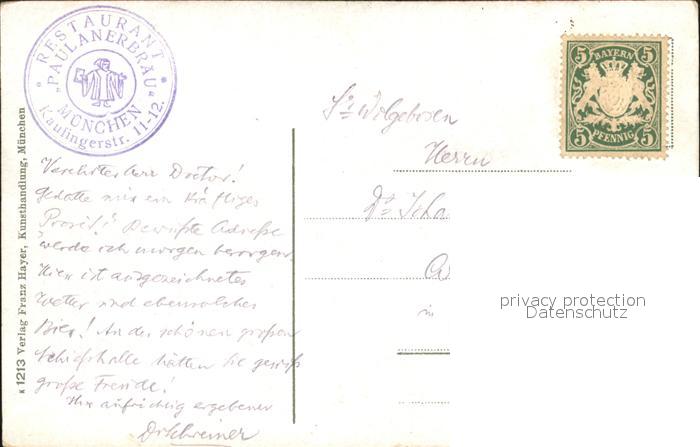 RESTAURANT
"PAULANERBRÄU"
MÜNCHEN
Kaufingerstr. 11-12.
BAYERN
5 5
5 5
PFENNIG
Sr. Wolgeboren
Herrn
Dr. Scha
in
privacy protection
Datenschutz
Verehrter Herr Doctor!
Gestatte mir ein kräftiges
Prosit! Bewußte Adresse
werde ich morgen besorgen.
Hier ist ausgezeichnetes
Wetter und ebensolches
Bier! An der schönen großen
Schießhalle hätten Sie gewiß
große Freude!
Ihr aufrichtig ergebener
Dr Schreiner
K 1213 Verlag Franz Hayer, Kunsthandlung, München